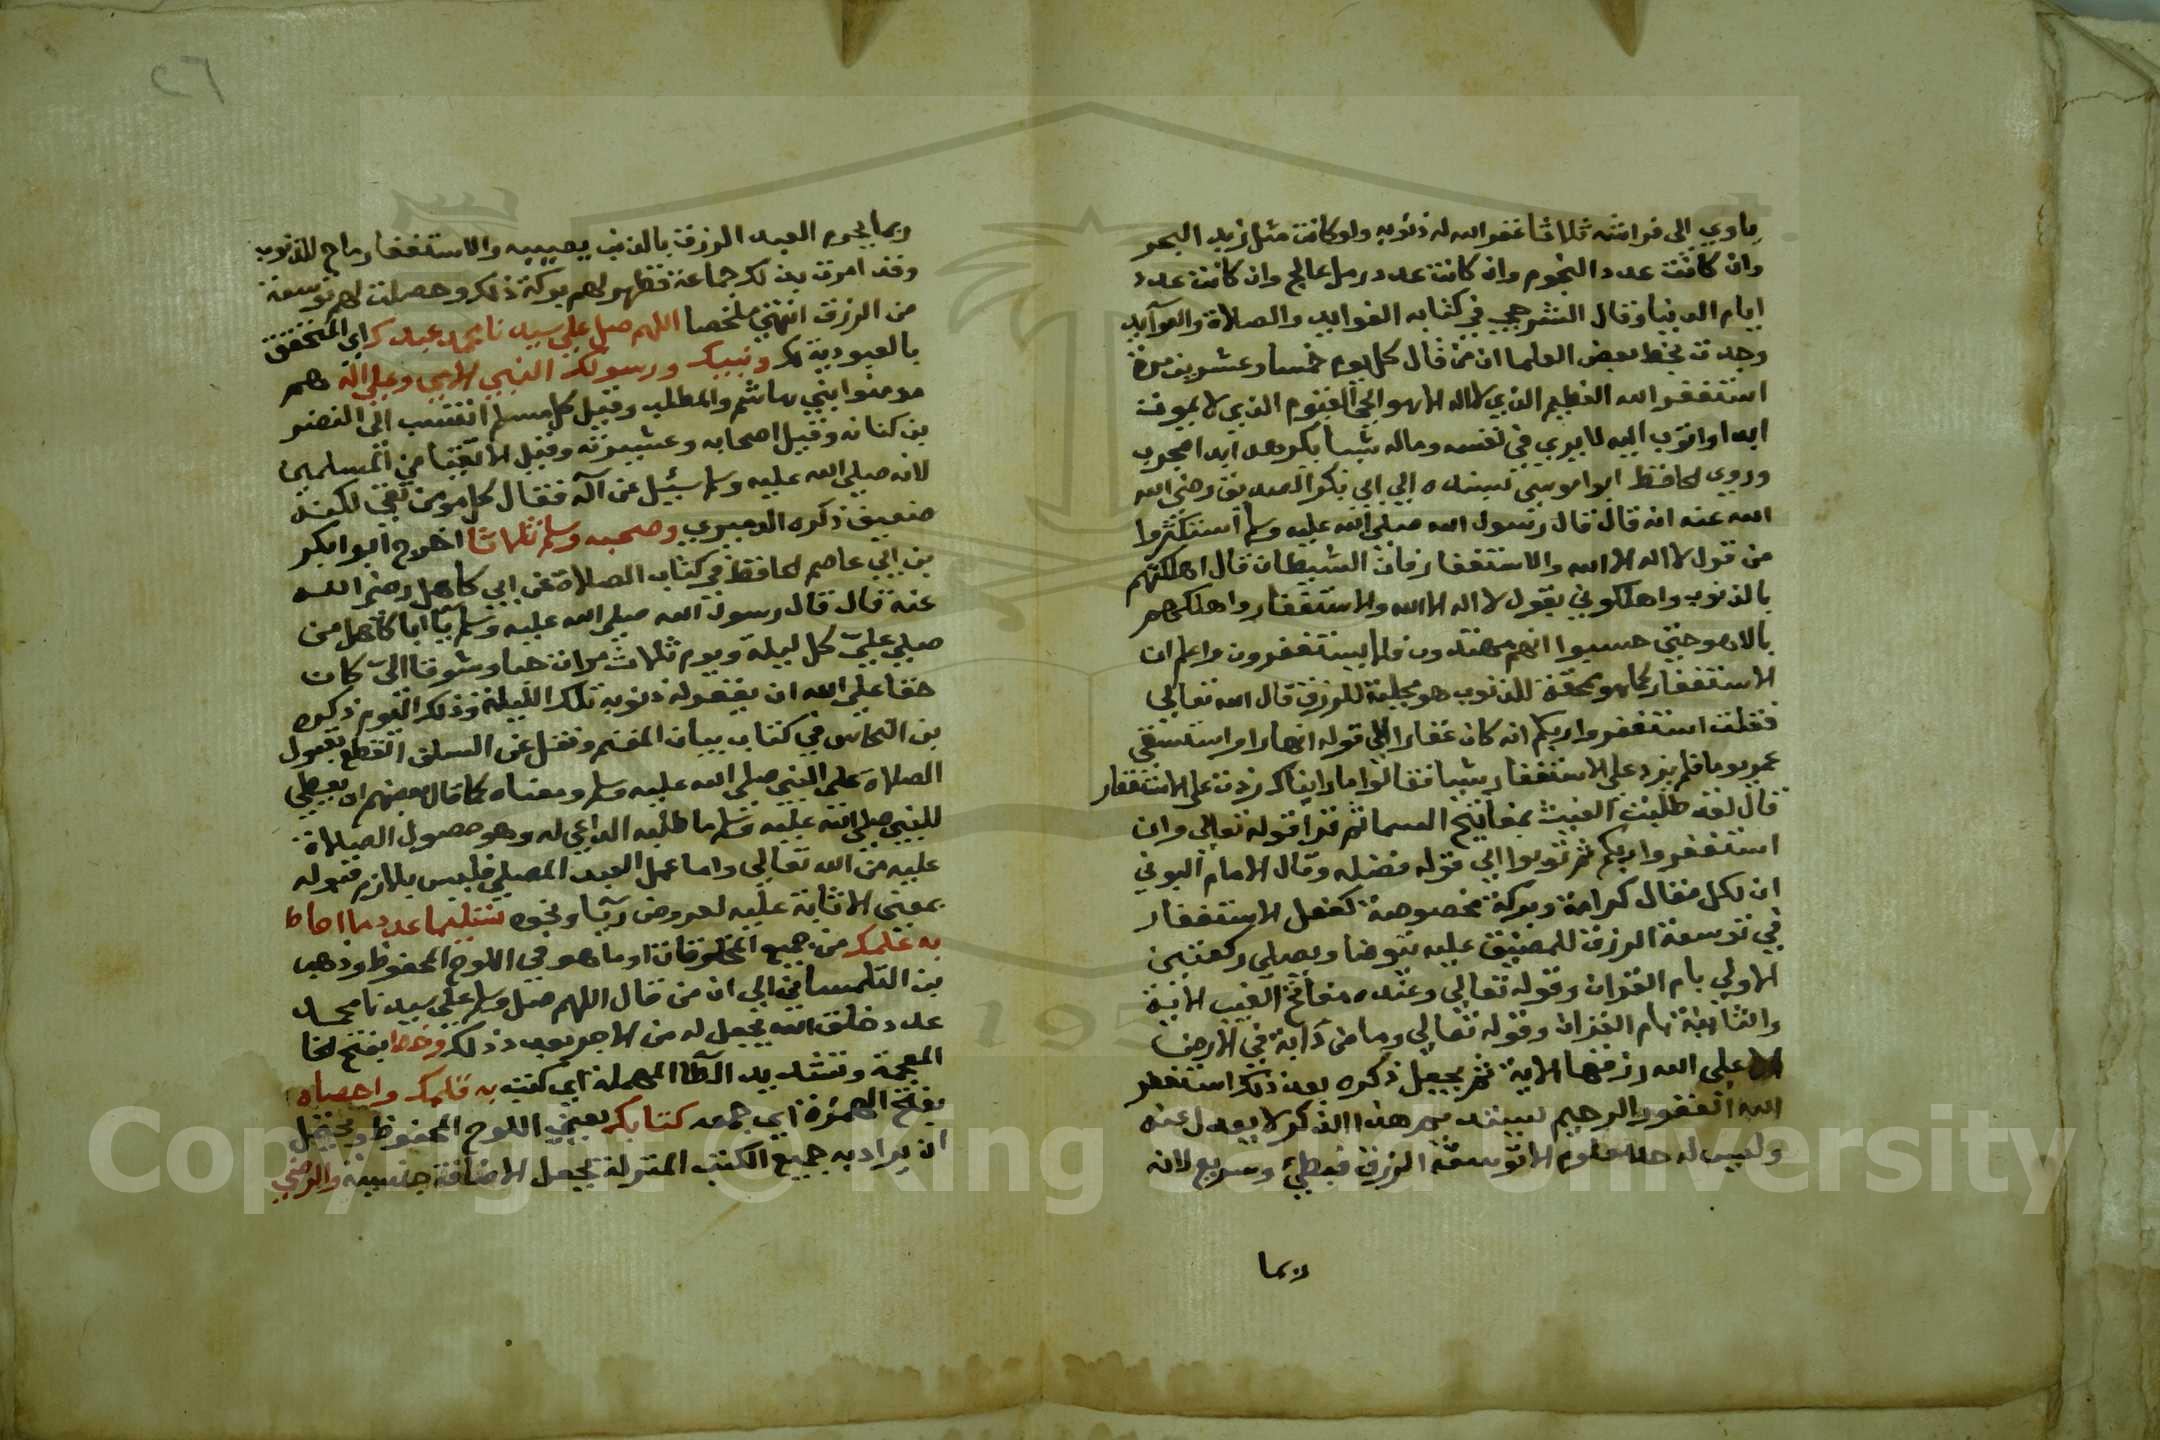 ياوي الى فراشه ثلاثا غفر الله له ذنوبه ولو كانت مثل زبد البحر
وان كانت عدد النجوم وان كانت عدد رمل عالج وان كانت عدد
ايام الدنيا وقال الشرجي في كتابه الفوايد والصلاة والعوآيد
وجدت بخط بعض العلما ان من قال كل يوم خمسا وعشرين مرة
استغفر الله العظيم الذي لا اله الا هو الحي القيوم الذي لا يموت
ابدا واتوب اليه لا يري في نفسه وماله شيا يكرهه ابدا مجرب
وروى الحافظ ابو اموسي بسنده الي ابي بكر الصديق رضي الله
الله عنه انه قال قال رسول الله صلى الله عليه وسلم استكثروا
من قول لا اله الا الله والاستغفار فان الشيطان قال اهلكتهم
بالذنوب واهلكوني بقول لا اله الا الله والاستغفار واهلكهم
بالاهو حتي حسبوا انهم مهتدون فلا يستغفرون واعلم ان
الاستغفار كما هو ممحقة للذنوب هو مجلبة للرزق قال الله تعالي
فقلت استغفروا ربكم انه كان غفارا الي قوله انهارا واستسقي
عمر يوما فلم يزد علي الاستغفار شيا فقالوا ما رايناك زدت على الاستغفار
قال لقد طلبت الغيث بمفاتيح السما ثم قرا قوله تعالي وان
استغفروا ربكم ثم توبوا الي قوله فضله وقال الامام البوني
ان لكل مقال كرامة وبركة مخصوصة كفعل الاستغفار
في توسعة الرزق للمضيق عليه يتوضا ويصلي ركعتين
الاولي بام القران وقوله تعالي وعنده مفاتح الغيب الاية
والثانية بام القران وقوله تعالي وما من دابة في الارض
الا علي الله رزقها الاية ثم يجعل ذكره بعد ذلك استغفر
الله الغفور الرحيم هذا الذكر لا يعدل عنه
وليس له حد معلوم الا توسعة الرزق فبطئ وسريع لانه
ربما
٢٦
ربما يحرم العبد الرزق بالذنب يصيبه والاستغفار ماح للذنوب
وقد امرت بذلك جماعة فظهر لهم بركة ذلك وحصلت لهم توسعة
من الرزق انتهي ملخصا اللهم صل علي سيدنا محمد عبدك اي المتحقق
بالعبودية لك ونبيك ورسولك النبي الامي وعلي اله هم
مومنوا بني هاشم والمطلب وقيل كل مسلم انتسب الى النضر
بن كنانه وقيل اصحابه وعشيرته وقيل الاتقيا من المسلمين
لانه صلى الله عليه وسلم سئل عن آله فقال كل مومن تقي لكنه
ضعيف ذكره الدميري وصحبه وسلم ثلاثا اخرج ابو ابكر
بن ابي عاصم الحافظ في كتاب الصلاة عن ابي كاهل رضي الله
عنه قال قال رسول الله صلى الله عليه وسلم يا ابا كاهل من
صلي عليّ كل ليلة ويوم ثلاث مرات حبا وشوقا اليّ كان
حقا علي الله ان يغفر له ذنوبه تلك الليلة وذلك اليوم ذكره
بن النحاس في كتاب بيان المغنم ونقل عن السلف القطع بقبول
الصلاة علي النبي صلى الله عليه وسلم ومعناه كما قال بعضهم ان يعطي
للنبي صلى الله عليه وسلم ما طلبه الداعي له وهو حصول الصلاة
عليه من الله تعالي واما عمل العبد المصلي فليس بلازم قبوله
بمعني الاثابة عليه لعروض ريّا ونحوه تسليما عدد ما احاط
به علمك من جميع المخلوقات او ما هو في اللوح المحفوظ وذهب
بن التلمساني الي ان من قال اللهم صل وسلم علي سيدنا محمد
عدد خلق الله يجعل له من الاجر بعدد ذلك وخط بفتح الخا
المعجمة وتشديد الطّا المهملة اي كتب به قلمك واحصاه
بفتح الهمزة اي جمعه كتابك يعني اللوح المحفوظ ويحتمل
ان يراد به جميع الكتب المنزلة بجعل الاضافة جنسية والرضي
Copyright © King Saud University